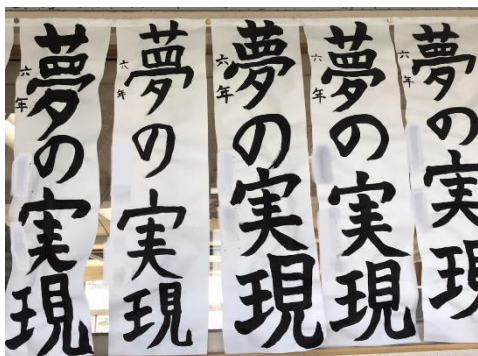 夢の実現
六年
夢の実現
六年
夢の実現
六年
夢の実現
六年
夢の実現
六年